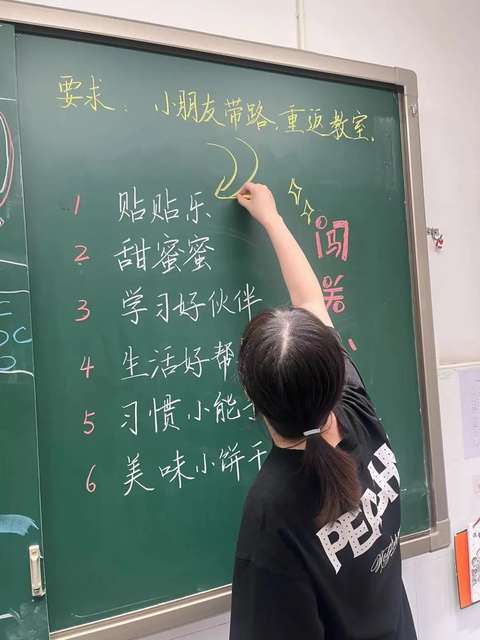 要求：小朋友带路，重返教室。
1 贴贴乐
2 甜蜜蜜
3 学习好伙伴
4 生活好帮
5 习惯小能
6 美味小饼干
闯关